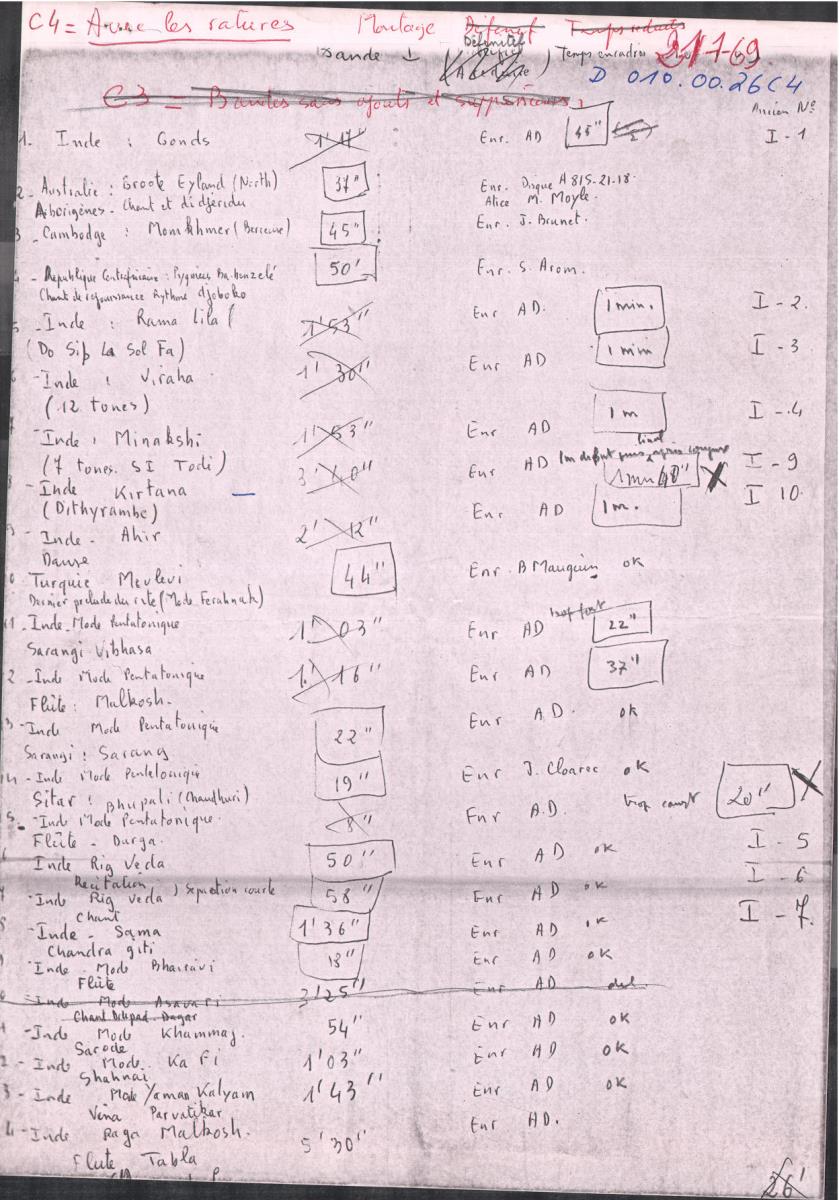 C4 = Avec les ratures Montage Définit Temps réduits
Définitif
Bande 1 Temps encadrés 21-1-69
D 010.00.26C4
C3 = Bandes sans ajouts et suppressions
Ancien N°
1. Inde : Gonds 1'17" Enr. AD 45" I-1
2 - Australie : Groote Eyland (North) 37" Enr. Disque A 815-21-18.
Aborigènes - Chant et didjeridu Alice M. Moyle.
3 - Cambodge : Monkhmer (Berceuse) 45" Enr. J. Brunet.
4 - République Centrafricaine : Pygmées Ba-Benzelé 50' Enr. S. Arom.
Chant de réjouissance Rythme djoboko
5 - Inde : Rama Lila ( 1'53" Enr AD. 1 min. I - 2.
(Do Sib La Sol Fa)
6 - Inde : Viraha 1' 30" Enr AD 1 min I - 3
(12 tones)
7 - Inde : Minakshi 1'53" Enr AD 1 m I - 4
(7 tones. SI Todi)
8 - Inde Kirtana 3' 10" Enr AD 1 mn 40" X I - 9
(Dithyrambe)
9 - Inde - Ahir 2' 12" Enr AD 1 m. I 10.
Danse
0 Turquie Mevlevi 44" Enr. B Mauguin ok
Dernier prelude du rite (Mode Ferahnak)
11 - Inde - Mode Pentatonique 1' 03" Enr AD trop fort 22"
Sarangi Vibhasa
2 - Inde Mode Pentatonique 1' 16" Enr AD 37"
Flûte : Malkosh.
3 - Inde Mode Pentatonique 22" Enr A.D. ok
Sarangi : Sarang
14 - Inde Mode Pentatonique 19" Enr J. Cloarec ok
Sitar : Bhupali (Chaudhuri)
5. - Inde Mode Pentatonique. 8" Enr A.D. trop court 20" X
Flûte - Durga.
6 Inde Rig Veda 50" Enr AD ok I - 5
Recitation
7 - Inde Rig Veda ) séparation courte 58" Enr AD ok I - 6
Chant
8 - Inde - Sama 1'36" Enr AD ok I - 7.
Chandra giti
9 Inde - Mode Bhairavi 18" Enr AD ok
Flûte
0 - Inde Mode Asavari 3'25" Enr AD
Chant Dhrupad - Dagar
1 - Inde Mode Khammaj. 54" Enr AD ok
Sarode
2 - Inde Mode Ka Fi 1'03" Enr AD ok
Shahnai
3 - Inde Mode Yaman Kalyam 1'43" Enr AD ok
Vina Parvatikar
4 - Inde Raga Malkosh. 5'30" Enr AD.
Flute Tabla
26'